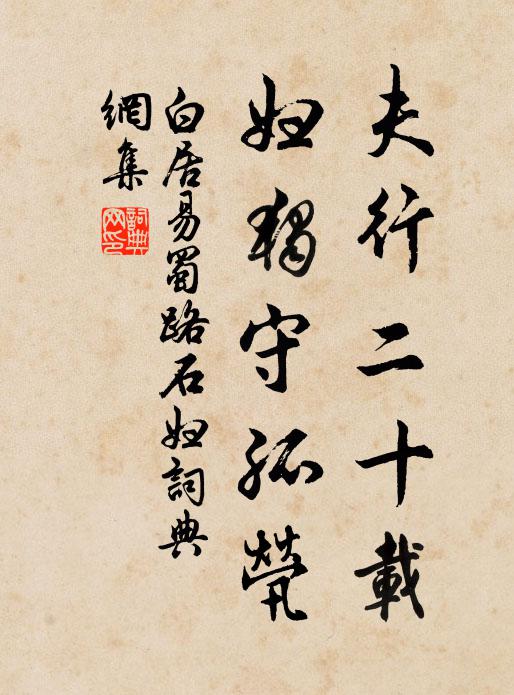 夫行二十載
婦獨守孤煢
白居易蜀路石婦詞典
網集
詞典網印